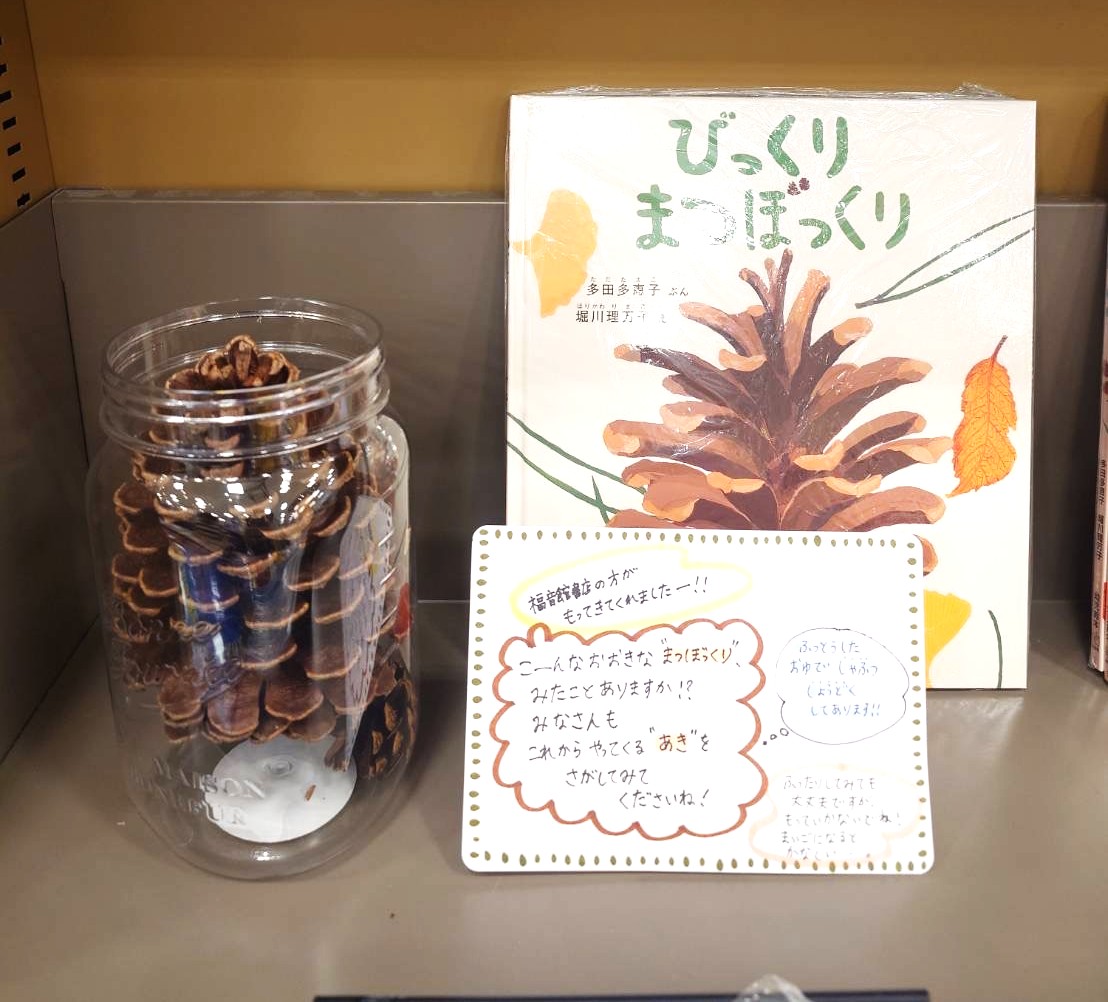 びっくり
まつぼっくり
多田多恵子 ぶん
堀川理万子 え
福音館書店の方が
もってきてくれましたー!!
こーんなおおきな"まつぼっくり"、
みたことありますか!?
みなさんも
これから やってくる"あき"を
さがしてみて
くださいね!
ふっとうした
おゆで じゃぶっ
しょうどく
してあります!!
大丈夫ですが、
もっていかないでね!
まいごになると
かなしい・・・
MAISON